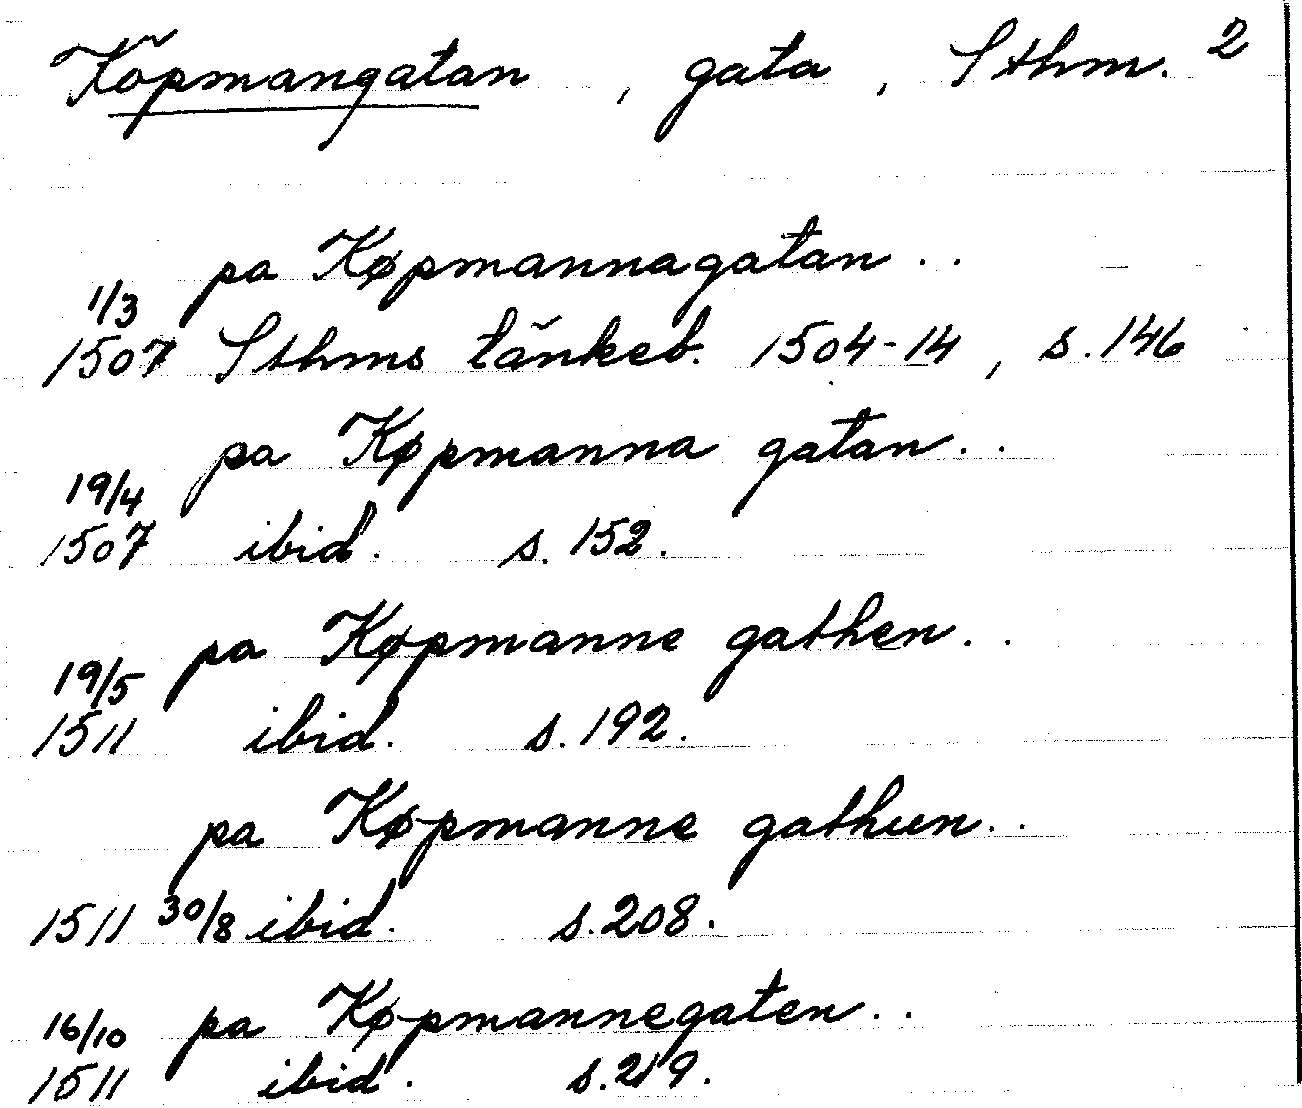 Köpmangatan , gata , Sthm. 2
pa Køpmannagatan . .
1/3
1507 Sthms tänkeb. 1504-14 , s. 146
pa Køpmanna gatan . .
19/4
1507 ibid. s. 152.
pa Køpmanne gathen . .
19/5
1511 ibid. s. 192.
pa Køpmanne gathun . .
1511 30/8 ibid. s. 208.
16/10 pa Køpmannegaten . .
1511 ibid. s. 219.